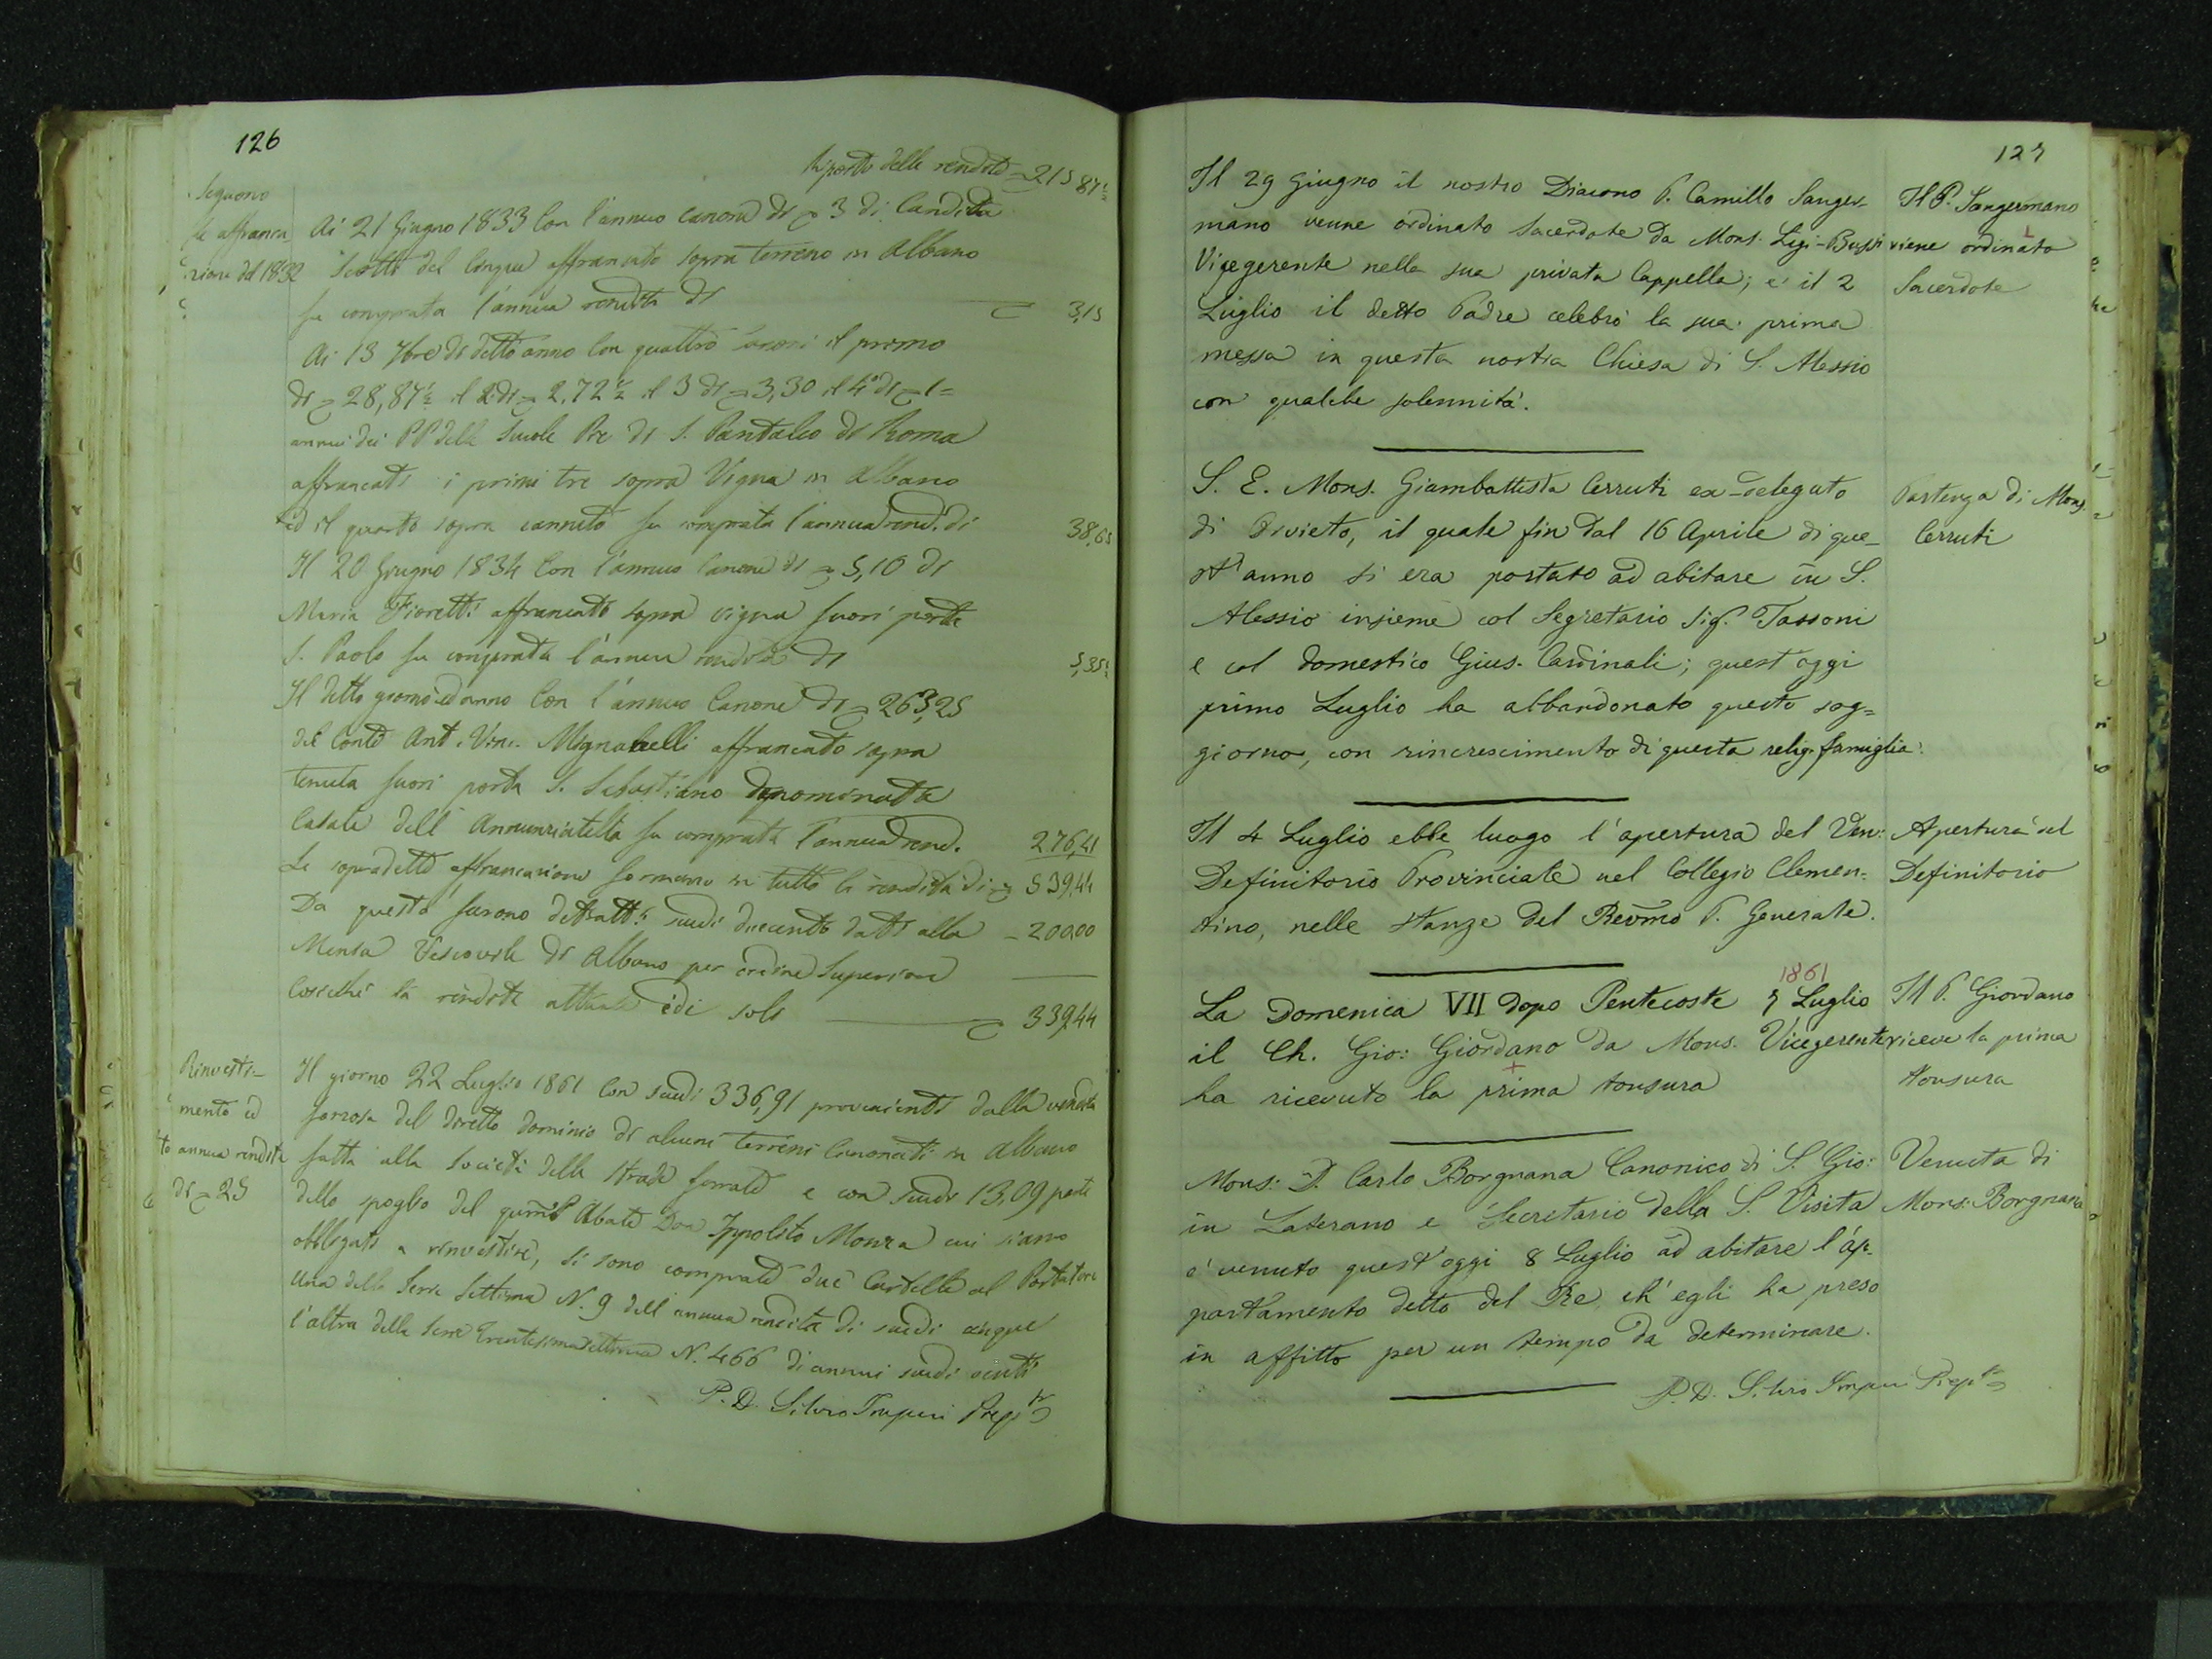 126
Riporto delle rendite = 215 87½
Seguono
le affranca-
zione del 1832
Ai 21 Giugno 1833 Con l'annuo canone di 3 di Candida
Scotti del Cinque affrancato sopra terreno in Albano
fu comprata l'annua rendita di 3,15
Ai 13 7bre di detto anno Con quattro canoni il primo
di 28,87½ il 2 di 2,72½ il 3 di 3,30 il 4° di 1=
annui dei PP delle Scuole Pie di S. Pantaleo di Roma
affrancati i primi tre sopra Vigna in Albano
ed il quarto sopra canneto fu comprata l'annua rend. di 38,65
Il 20 Giugno 1834 Con l'annuo Canone di 5,10 di
Maria Fioretti affrancato sopra vigna fuori porta
S. Paolo fu comprata l'annua rendita di 5,35½
Il detto giorno ed anno Con l'annuo Canone di 263,25
del Conte Ant. Vinc. Mignanelli affrancato sopra
tenuta fuori porta S. Sebastiano denominata
Casale dell'Annunziatella fu comprata l'annua rend. 276,41
Le sopradette affrancazione formano in tutto la rendita di 539,44
Da questa furono detratti scudi duecento dati alla - 200,00
Mensa Vescovile di Albano per ordine Superiore
Cosicchè la rendita attuale è di soli 339,44
Rinvesti-
mento ed
to annua rendita
di 25
Il giorno 22 Luglio 1861 Con scudi 336,91 provenienti dalla vendita
forzosa del diretto dominio di alcuni terreni Canonati in Albano
fatta alla Società delle Strade ferrate e con scudi 13,09 parte
dello spoglio del qum Abate Don Ippolito Monza cui siamo
obbligati a rinvestire, si sono comprate due Cartelle al Portatore
una della Serie Settima N. 9 dell'annua rendita di scudi cinque
l'altra della Serie Trentesimasettima N. 466 di annui scudi venti
P. D. Silvio Imperi Prepto
127
Il 29 Giugno il nostro Diacono P. Camillo Sanger-
mano venne ordinato Sacerdote da Mons. Ligi-Bussi
Vicegerente nella sua privata Cappella; e il 2
Luglio il detto Padre celebrò la sua prima
messa in questa nostra Chiesa di S. Alessio
con qualche solennità.
Il P. Sangermano
viene ordinato
Sacerdote
S. E. Mons. Giambattista Cerruti ex-delegato
di Orvieto, il quale fin dal 16 Aprile di que-
st'anno si era portato ad abitare in S.
Alessio insieme col Segretario Sig. Tassoni
e col domestico Gius. Cardinali; quest'oggi
primo Luglio ha abbandonato questo sog=
giorno, con rincrescimento di questa relig. famiglia.
Partenza di Mons.
Cerruti
Il 4 Luglio ebbe luogo l'apertura del Ven:
Definitorio Provinciale nel Collegio Clemen-
tino, nelle stanze del Revmo P. Generale.
Apertura del
Definitorio
1861
La Domenica VII dopo Pentecoste 7 Luglio
il Ch. Gio: Giordano da Mons. Vicegerente
ha ricevuto la prima tonsura
Il P. Giordano
riceve la prima
tonsura
Mons: D. Carlo Borgnana Canonico di S. Gio:
in Laterano e Secretario della S. Visita
è venuto quest'oggi 8 Luglio ad abitare l'ap-
partamento detto del Re, ch'egli ha preso
in affitto per un tempo da determinare.
Venuta di
Mons: Borgnana
P. D. Silvio Imperi Prepto